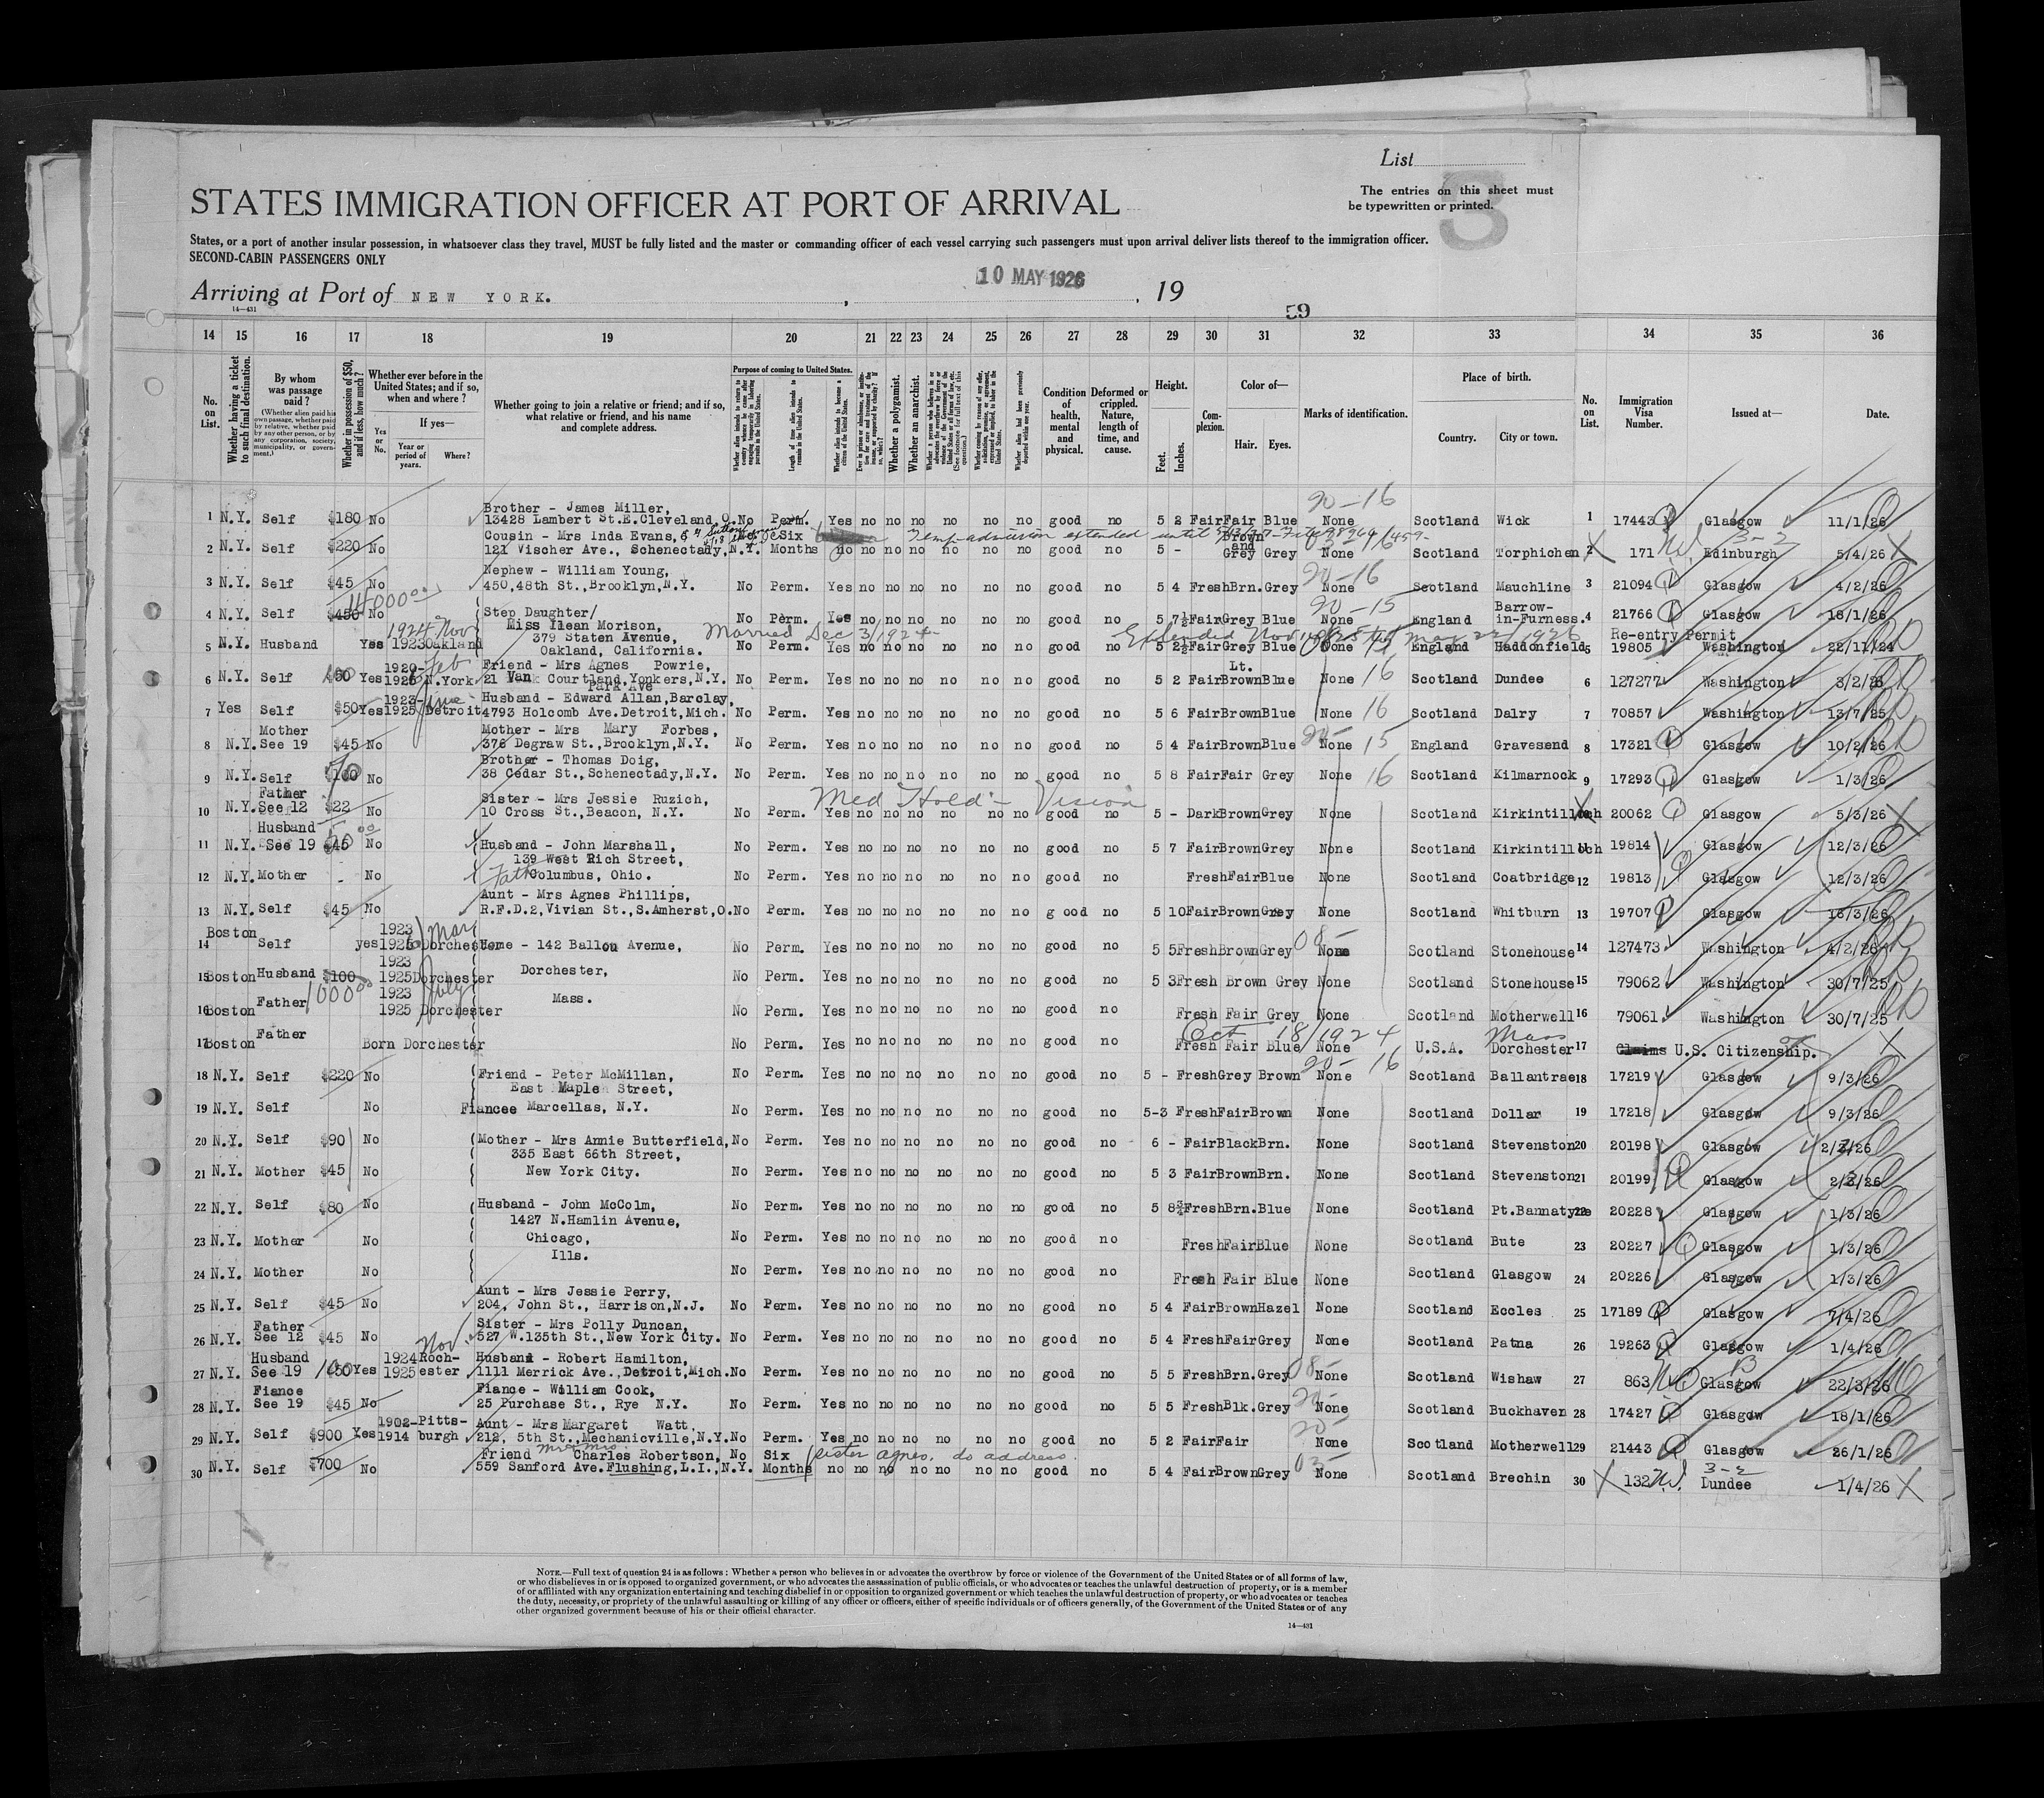 List
3
The entries on this sheet must
be typewritten or printed.
STATES IMMIGRATION OFFICER AT PORT OF ARRIVAL
States, or a port of another insular possession, in whatsoever class they travel, MUST be fully listed and the master or commanding officer of each vessel carrying such passengers must upon arrival deliver lists thereof to the immigration officer.
SECOND-CABIN PASSENGERS ONLY
Arriving at Port of NEW YORK. , 10 MAY 1926 , 19
14—431
59
14 15 16 17 18 19 20 21 22 23 24 25 26 27 28 29 30 31 32 33 34 35 36
No. on List.
Whether having a ticket to such final destination.
By whom was passage paid?
(Whether alien paid his own passage, whether paid by relative, whether paid by any other person, or by any corporation, society, municipality, or government.)
Whether in possession of $50, and if less, how much?
Whether ever before in the United States; and if so, when and where?
If yes—
Yes or No.
Year or period of years.
Where?
Whether going to join a relative or friend; and if so, what relative or friend, and his name and complete address.
Purpose of coming to United States.
Length of time alien intends to remain in the United States.
Whether alien intends to become a citizen of the United States.
Whether a polygamist.
Whether an anarchist.
Condition of health, mental and physical.
Deformed or crippled. Nature, length of time, and cause.
Height.
Feet.
Inches.
Complexion.
Color of—
Hair.
Eyes.
Marks of identification.
Place of birth.
Country.
City or town.
No. on List.
Immigration Visa Number.
Issued at—
Date.
20-16
Brother - James Miller,
1 N.Y. Self $180 No 13428 Lambert St.E.Cleveland,O. No Perm. Yes no no no no no no good no 5 2 Fair Fair Blue None Scotland Wick 1 17443 Glasgow 11/1/26
Cousin - Mrs Inda Evans, Six Temp admission extended until Brown and 3-2
2 N.Y. Self $220 No 121 Vischer Ave., Schenectady, N.Y. Months no no no no no no no good no 5 - Grey Grey None Scotland Torphichen 2 171 Edinburgh 5/4/26
Nephew - William Young, 20-16
3 N.Y. Self $45 No 450,48th St.,Brooklyn,N.Y. No Perm. Yes no no no no no no good no 5 4 Fresh Brn. Grey None Scotland Mauchline 3 21094 Glasgow 4/2/26
Step Daughter/ 20-15 Barrow-
4 N.Y. Self $450 No Miss Ilean Morison, No Perm. Yes no no no no no no good no 5 7½ Fair Grey Blue None England in-Furness. 4 21766 Glasgow 18/1/26
1924 Nov 379 Staten Avenue, Married Dec 3/1924 Extended Nov Re-entry Permit
5 N.Y. Husband Yes 1923 Oakland Oakland, California. No Perm. Yes no no no no no no good no 5 2½ Fair Grey Blue None England Haddonfield 5 19805 Washington 22/11/24
1920- Feb Friend - Mrs Agnes Powrie, Lt.
6 N.Y. Self Yes 1925 N.York 21 Van Courtland,Yonkers,N.Y. No Perm. Yes no no no no no no good no 5 2 Fair Brown Blue None 16 Scotland Dundee 6 127277 Washington 3/2/26
Park Ave
1923- June Husband - Edward Allan,Barclay,
7 Yes Self $50 Yes 1925 Detroit 4793 Holcomb Ave.Detroit,Mich. No Perm. Yes no no no no no no good no 5 6 Fair Brown Blue None 16 Scotland Dalry 7 70857 Washington 13/7/25
Mother Mother - Mrs Mary Forbes,
8 N.Y. See 19 $45 No 376 Degraw St.,Brooklyn,N.Y. No Perm. Yes no no no no no no good no 5 4 Fair Brown Blue None 15 England Gravesend 8 17321 Glasgow 10/2/26
Brother - Thomas Doig,
9 N.Y. Self $100 No 38 Cedar St.,Schenectady,N.Y. No Perm. Yes no no no no no no good no 5 8 Fair Fair Grey None 16 Scotland Kilmarnock 9 17293 Glasgow 1/3/26
Father Sister - Mrs Jessie Ruzich, Med Hold - Vision
10 N.Y. See 12 $22 No 10 Cross St.,Beacon, N.Y. No Perm. Yes no no no no no no good no 5 - Dark Brown Grey None Scotland Kirkintilloch 20062 Glasgow 5/3/26
Husband
11 N.Y. See 19 $45 No Husband - John Marshall, No Perm. Yes no no no no no no good no 5 7 Fair Brown Grey None Scotland Kirkintilloch 11 19814 Glasgow 12/3/26
139 West Rich Street,
12 N.Y. Mother - No Columbus, Ohio. No Perm. Yes no no no no no no good no Fresh Fair Blue None Scotland Coatbridge 12 19813 Glasgow 12/3/26
Aunt - Mrs Agnes Phillips,
13 N.Y. Self $45 No R.F.D.2,Vivian St.,S.Amherst,O. No Perm. Yes no no no no no no good no 5 10 Fair Brown Grey None Scotland Whitburn 13 19707 Glasgow 16/3/26
Boston 1923 Mar
14 Self yes 1925 Dorchester Home - 142 Ballou Avenue, No Perm. Yes no no no no no no good no 5 5 Fresh Brown Grey None Scotland Stonehouse 14 127473 Washington 4/2/26
1923
15 Boston Husband $100 1925 Dorchester Dorchester, No Perm. Yes no no no no no no good no 5 3 Fresh Brown Grey None Scotland Stonehouse 15 79062 Washington 30/7/25
1000 1923 July
16 Boston Father 1925 Dorchester Mass. No Perm. Yes no no no no no no good no Fresh Fair Grey None Scotland Motherwell 16 79061 Washington 30/7/25
Oct 18/1924 Mass
17 Boston Father Born Dorchester No Perm. Yes no no no no no no good no Fresh Fair Blue None U.S.A. Dorchester 17 Claims U.S. Citizenship.
20- 16
18 N.Y. Self $220 No Friend - Peter McMillan, No Perm. Yes no no no no no no good no 5 - Fresh Grey Brown None Scotland Ballantrae 18 17219 Glasgow 9/3/26
East Maple Street,
19 N.Y. Self No Fiancee Marcellas, N.Y. No Perm. Yes no no no no no no good no 5-3 Fresh Fair Brown None Scotland Dollar 19 17218 Glasgow 9/3/26
20 N.Y. Self $90 No Mother - Mrs Annie Butterfield, No Perm. Yes no no no no no no good no 6 - Fair Black Brn. None Scotland Stevenston 20 20198 Glasgow 2/3/26
335 East 66th Street,
21 N.Y. Mother $45 No New York City. No Perm. Yes no no no no no no good no 5 3 Fair Brown Brn. None Scotland Stevenston 21 20199 Glasgow 2/3/26
22 N.Y. Self $80 No Husband - John McColm, No Perm. Yes no no no no no no good no 5 8¾ Fresh Brn. Blue None Scotland Pt.Bannatyne 22 20228 Glasgow 1/3/26
1427 N.Hamlin Avenue,
23 N.Y. Mother No Chicago, No Perm. Yes no no no no no no good no Fresh Fair Blue None Scotland Bute 23 20227 Glasgow 1/3/26
Ills.
24 N.Y. Mother No No Perm. Yes no no no no no no good no Fresh Fair Blue None Scotland Glasgow 24 20226 Glasgow 1/3/26
Aunt - Mrs Jessie Perry,
25 N.Y. Self $45 No 204, John St., Harrison,N.J. No Perm. Yes no no no no no no good no 5 4 Fair Brown Hazel None Scotland Eccles 25 17189 Glasgow 7/4/26
Father Sister - Mrs Polly Duncan,
26 N.Y. See 12 $45 No 527 W.135th St.,New York City. No Perm. Yes no no no no no no good no 5 4 Fresh Fair Grey None Scotland Patna 26 19263 Glasgow 1/4/26
Husband 1924 Roch- Nov. Husband - Robert Hamilton,
27 N.Y. See 19 Yes 1925 ester 1111 Merrick Ave.,Detroit,Mich. No Perm. Yes no no no no no no good no 5 5 Fresh Brn. Grey None Scotland Wishaw 27 863 Glasgow 22/3/26
Fiance Fiance - William Cook,
28 N.Y. See 19 $45 No 25 Purchase St., Rye N.Y. No Perm. Yes no no no no no no good no 5 5 Fresh Blk. Grey None Scotland Buckhaven 28 17427 Glasgow 18/1/26
1902- Pitts- Aunt - Mrs Margaret Watt,
29 N.Y. Self $900 Yes 1914 burgh 212, 5th St.,Mechanicville,N.Y. No Perm. Yes no no no no no no good no 5 2 Fair Fair None Scotland Motherwell 29 21443 Glasgow 26/1/26
Friend Mr & Mrs Charles Robertson, No Six sister Agnes. do address. 3-2
30 N.Y. Self $700 No 559 Sanford Ave.Flushing,L.I.,N.Y. Months no no no no no no no good no 5 4 Fair Brown Grey None Scotland Brechin 30 132 Dundee 1/4/26
NOTE.—Full text of question 24 is as follows: Whether a person who believes in or advocates the overthrow by force or violence of the Government of the United States or of all forms of law,
or who disbelieves in or is opposed to organized government, or who advocates the assassination of public officials, or who advocates or teaches the unlawful destruction of property, or is a member
of or affiliated with any organization entertaining and teaching disbelief in or opposition to organized government or which teaches the unlawful destruction of property, or who advocates or teaches
the duty, necessity, or propriety of the unlawful assaulting or killing of any officer or officers, either of specific individuals or of officers generally, of the Government of the United States or of any
other organized government because of his or their official character.
14—431